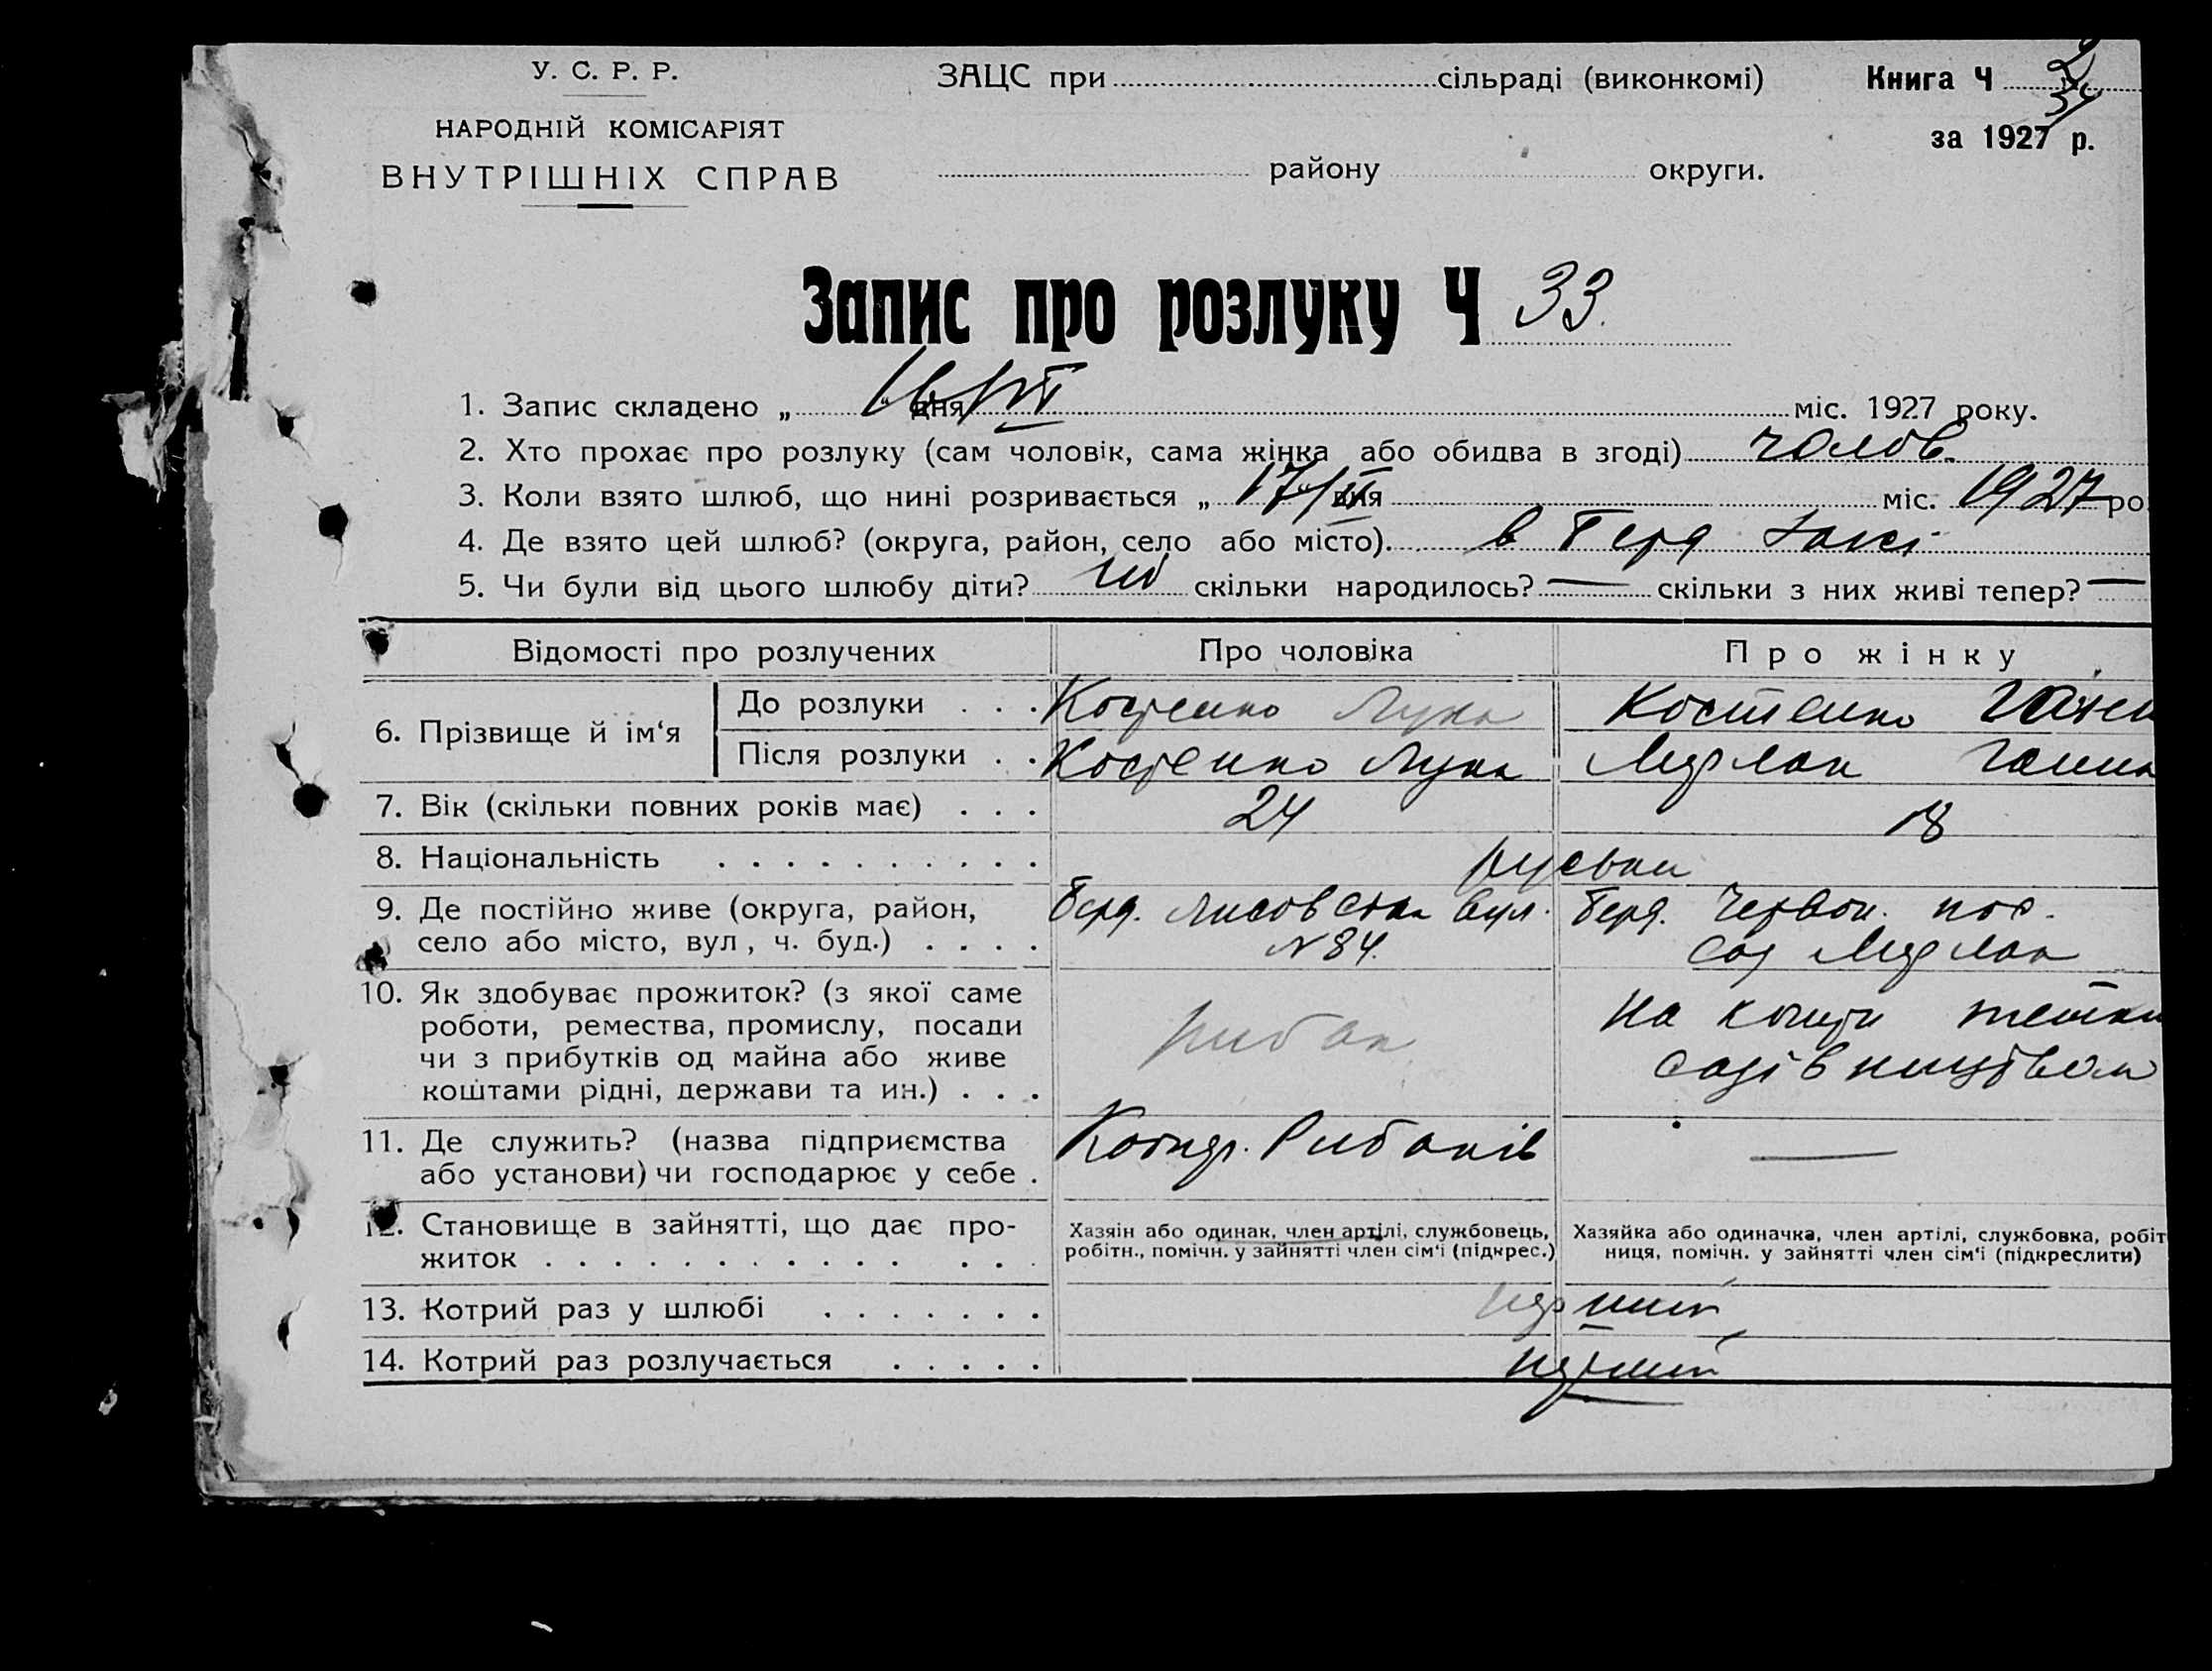 У. С. Р. Р.
НАРОДНІЙ КОМІСАРІЯТ
ВНУТРІШНІХ СПРАВ
ЗАЦС при сільраді (виконкомі)
району округи.
Книга Ч
за 1927 р.
Запис про розлуку Ч 33.
1. Запис складено „ 16/III “ дня міс. 1927 року.
2. Хто прохає про розлуку (сам чоловік, сама жінка або обидва в згоді) чолов.
3. Коли взято шлюб, що нині розривається „ 17/ “ дня міс. 1927 ро
4. Де взято цей шлюб? (округа, район, село або місто) в Берд Заксі
5. Чи були від цього шлюбу діти? ні скільки народилось? — скільки з них живі тепер? —
Відомості про розлучених Про чоловіка Про жінку
6. Прізвище й ім‘я
До розлуки . . . Костенко Лука Костенко
Після розлуки . . Костенко Лука Ганна
7. Вік (скільки повних років має) . . . 24 18
8. Національність . . . . . . . . . . руськи
9. Де постійно живе (округа, район, Берд. Лисовська вул. Берд. Червон. пос.
село або місто, вул , ч. буд.) . . . . N 84. сад
10. Як здобуває прожиток? (з якої саме
роботи, ремества, промислу, посади
чи з прибутків од майна або живе
коштами рідні, держави та ин.) . . .
рибак
На кошти тетки
садівництвом
11. Де служить? (назва підприємства
або установи) чи господарює у себе .
Рибаків —
12. Становище в зайнятті, що дає про-
житок . . . . . . . . . . . . . . .
Хазяін або одинак, член артілі, службовець,
робітн., помічн. у зайнятті член сім‘і (підкрес.)
Хазяйка або одиначка, член артілі, службовка, робіт
ниця, помічн. у зайнятті член сім‘і (підкреслити)
13. Котрий раз у шлюбі . . . . . . . перший
14. Котрий раз розлучається . . . . . перший